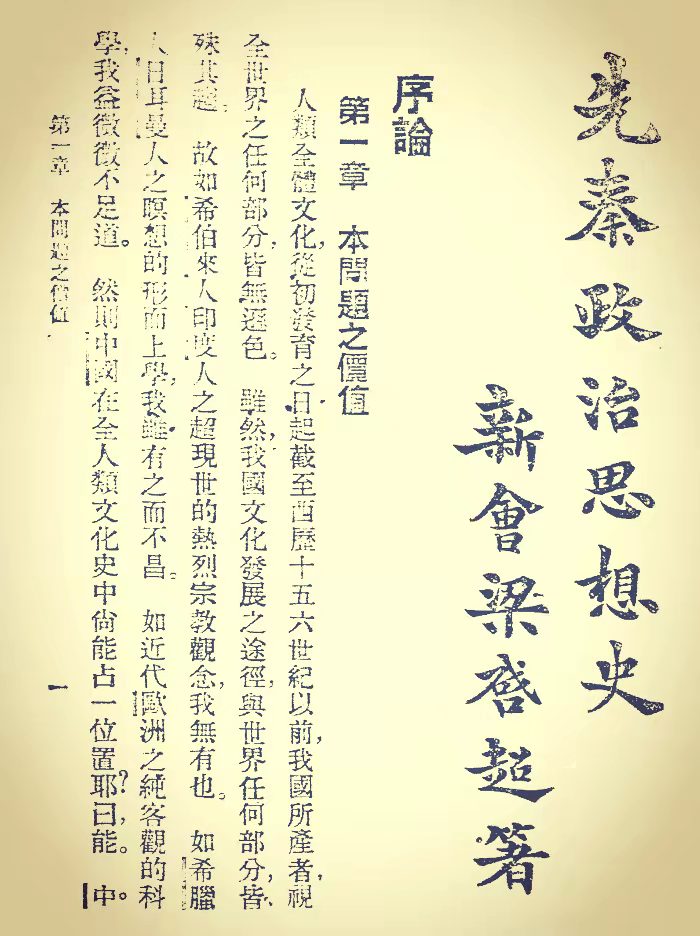 先秦政治思想史
新會梁啓超著
序論
第一章　本問題之價值
人類全體文化，從初發育之日起截至西歷十五六世紀以前，我國所產者，視
全世界之任何部分，皆無遜色。雖然，我國文化發展之途徑，與世界任何部分，皆
殊其趨。故如希伯來人印度人之超現世的熱烈宗教觀念，我無有也。如希臘
人日耳曼人之瞑想的形而上學，我雖有之而不昌。如近代歐洲之純客觀的科
學，我益微微不足道。然則中國在全人類文化史中尙能占一位置耶？曰，能。中。
第一章　本問題之價值
一